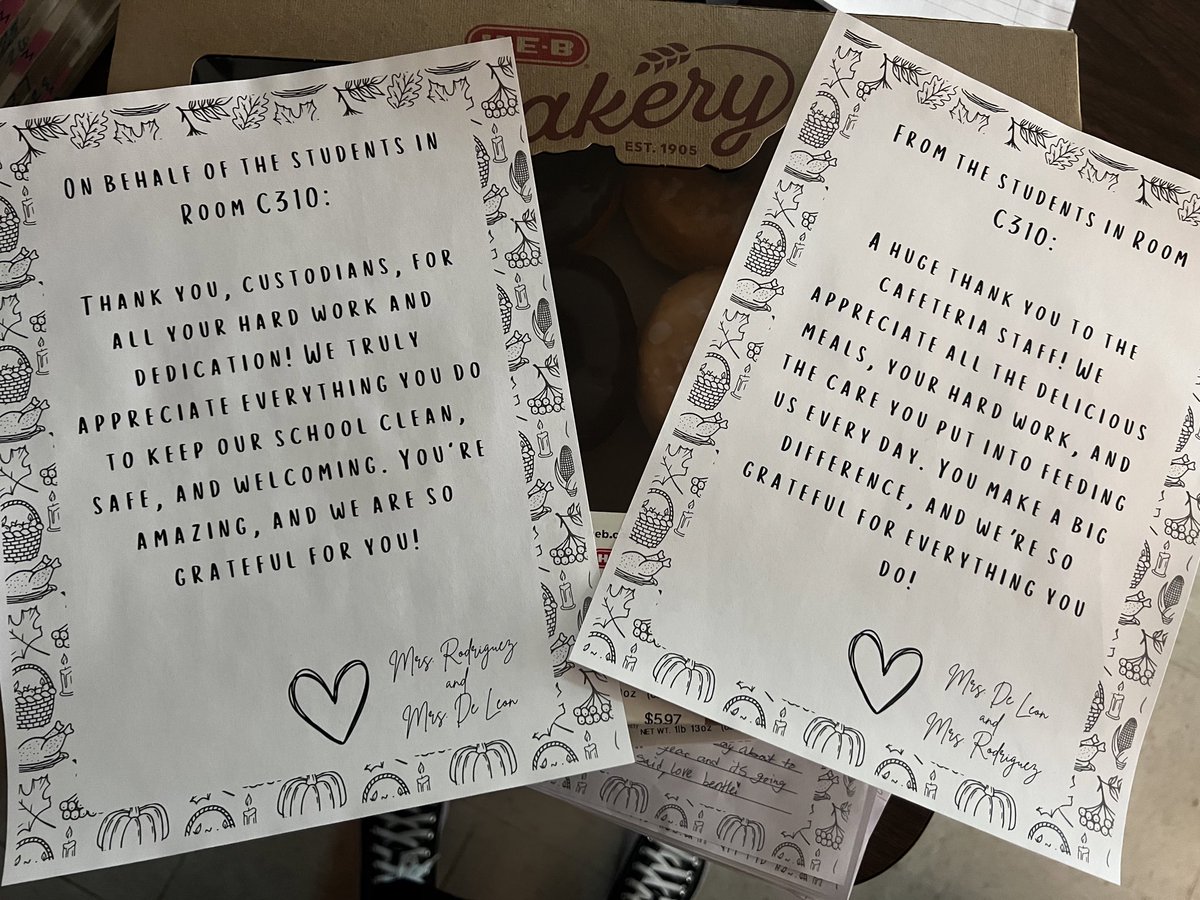 H-E-B
akery
EST. 1905
On behalf of the students in
Room C310:
Thank you, custodians, for
all your hard work and
dedication! We truly
appreciate everything you do
to keep our school clean,
safe, and welcoming. You're
amazing, and we are so
grateful for you!
Mrs. Rodriguez
and
Mrs. De Leon
From the students in Room
C310:
A huge thank you to the
cafeteria staff! We
appreciate all the delicious
meals, your hard work, and
the care you put into feeding
us every day. You make a big
difference, and we're so
grateful for everything you
do!
Mrs. De Leon
and
Mrs. Rodriguez
$5.97
NET WT. 1lb 13oz
about to
year and it's going
said, love